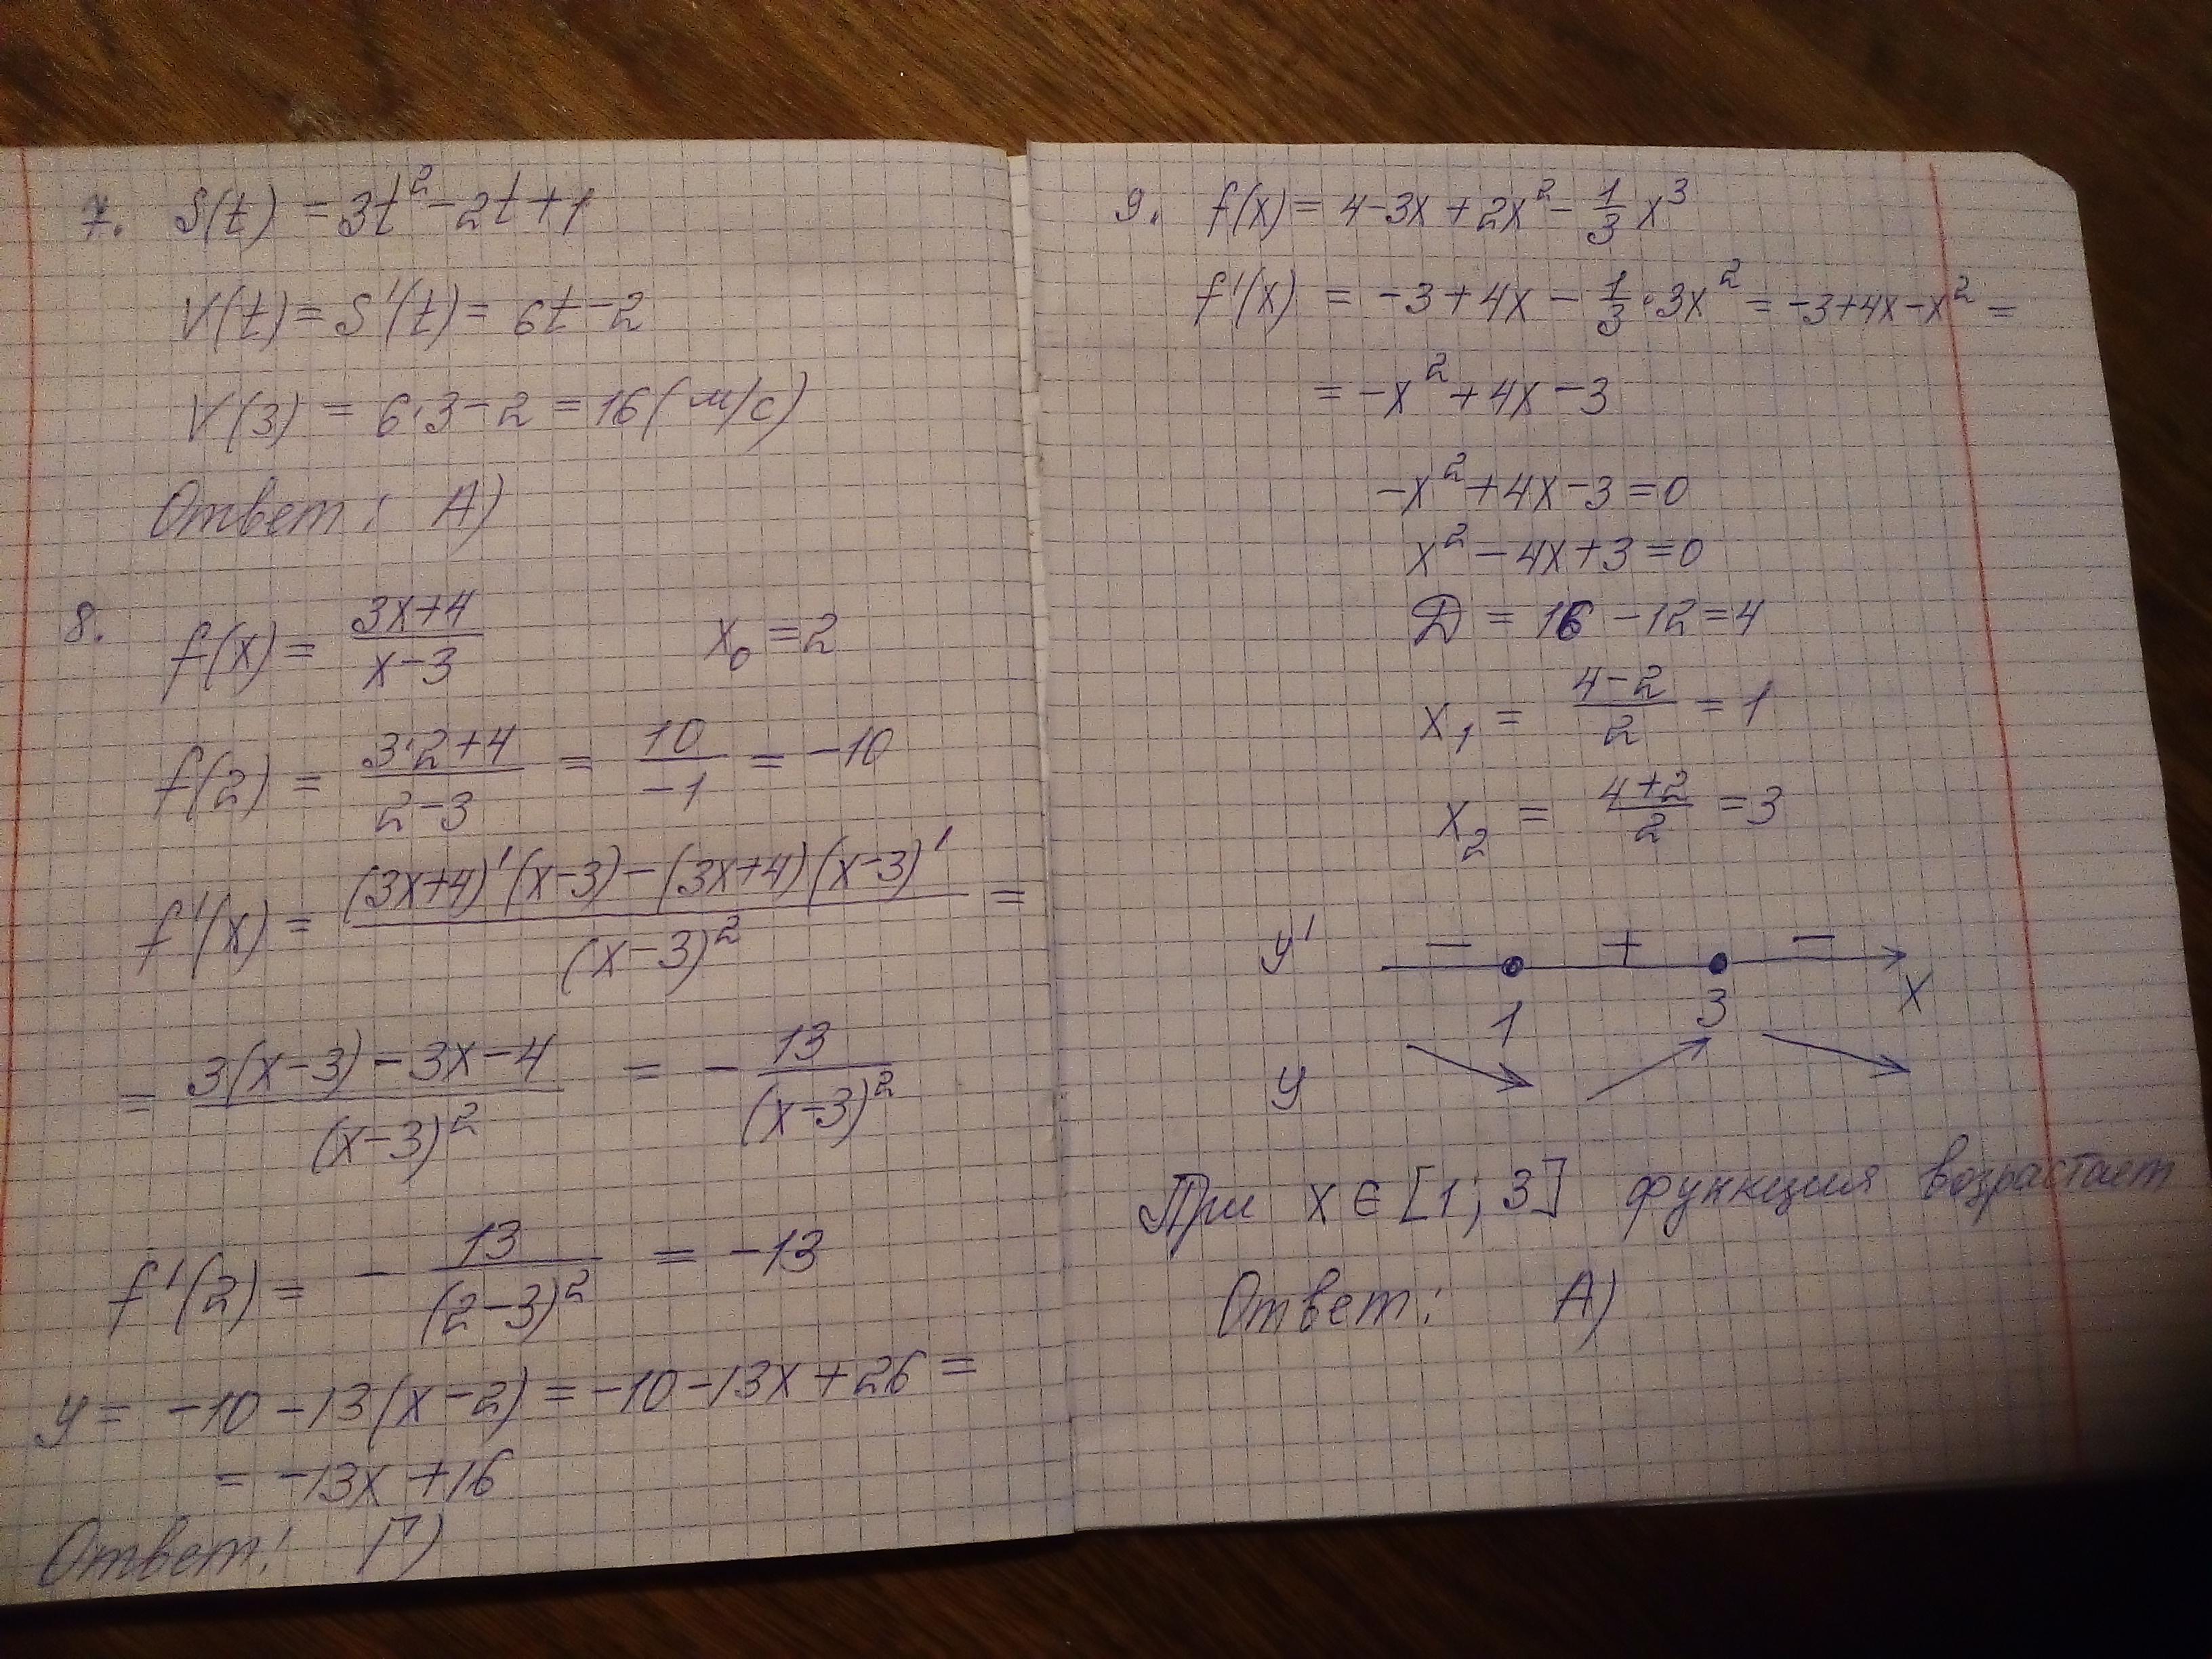 7. S(t) = 3t² - 2t + 1
V(t) = S'(t) = 6t - 2
V(3) = 6·3 - 2 = 16 (м/с)
Ответ: А)
8. f(x) = (3x+4)/(x-3) x₀ = 2
f(2) = (3·2+4)/(2-3) = 10/(-1) = -10
f'(x) = ((3x+4)'(x-3) - (3x+4)(x-3)')/(x-3)² =
= (3(x-3) - 3x - 4)/(x-3)² = - 13/(x-3)²
f'(2) = - 13/(2-3)² = -13
y = -10 - 13(x-2) = -10 - 13x + 26 =
= -13x + 16
Ответ: Г)
9. f(x) = 4 - 3x + 2x² - 1/3 x³
f'(x) = -3 + 4x - 1/3 · 3x² = -3 + 4x - x² =
= -x² + 4x - 3
-x² + 4x - 3 = 0
x² - 4x + 3 = 0
D = 16 - 12 = 4
x₁ = (4-2)/2 = 1
x₂ = (4+2)/2 = 3
y' - + -
1 3 x
y
При x ∈ [1; 3] функция возрастает
Ответ: А)